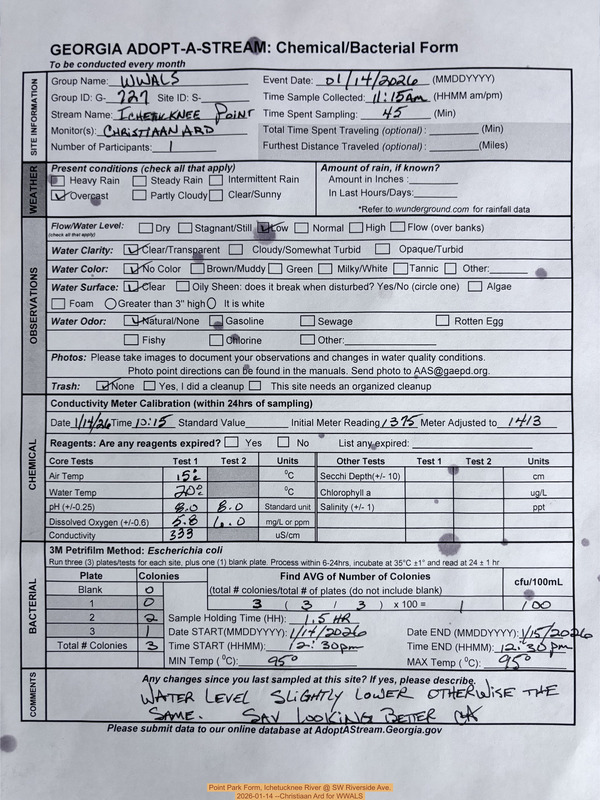 GEORGIA ADOPT-A-STREAM: Chemical/Bacterial Form
To be conducted every month
SITE INFORMATION
Group Name: WWALS Event Date: 01/14/2026 (MMDDYYYY)
Group ID: G- 727 Site ID: S- Time Sample Collected: 11:15am (HHMM am/pm)
Stream Name: ICHETUCKNEE POINT Time Spent Sampling: 45 (Min)
Monitor(s): CHRISTIAAN ARD Total Time Spent Traveling (optional) : (Min)
Number of Participants: 1 Furthest Distance Traveled (optional) : (Miles)
WEATHER
Present conditions (check all that apply) Amount of rain, if known?
Heavy Rain Steady Rain Intermittent Rain Amount in Inches :
Overcast Partly Cloudy Clear/Sunny In Last Hours/Days:
*Refer to wunderground.com for rainfall data
OBSERVATIONS
Flow/Water Level: Dry Stagnant/Still Low Normal High Flow (over banks)
(check all that apply)
Water Clarity: Clear/Transparent Cloudy/Somewhat Turbid Opaque/Turbid
Water Color: No Color Brown/Muddy Green Milky/White Tannic Other:
Water Surface: Clear Oily Sheen: does it break when disturbed? Yes/No (circle one) Algae
Foam Greater than 3" high It is white
Water Odor: Natural/None Gasoline Sewage Rotten Egg
Fishy Chlorine Other:
Photos: Please take images to document your observations and changes in water quality conditions.
Photo point directions can be found in the manuals. Send photo to AAS@gaepd.org.
Trash: None Yes, I did a cleanup This site needs an organized cleanup
CHEMICAL
Conductivity Meter Calibration (within 24hrs of sampling)
Date 1/14/26 Time 10:15 Standard Value Initial Meter Reading 1375 Meter Adjusted to 1413
Reagents: Are any reagents expired? Yes No List any expired:
Core Tests Test 1 Test 2 Units Other Tests Test 1 Test 2 Units
Air Temp 15°c °C Secchi Depth(+/- 10) cm
Water Temp 20°c °C Chlorophyll a ug/L
pH (+/-0.25) 8.0 8.0 Standard unit Salinity (+/- 1) ppt
Dissolved Oxygen (+/-0.6) 5.8 6.0 mg/L or ppm
Conductivity 333 uS/cm
BACTERIAL
3M Petrifilm Method: Escherichia coli
Run three (3) plates/tests for each site, plus one (1) blank plate. Process within 6-24hrs, incubate at 35°C ±1° and read at 24 ± 1 hr
Plate Colonies Find AVG of Number of Colonies cfu/100mL
Blank 0 (total # colonies/total # of plates (do not include blank)
1 0 3 ( 3 / 3 ) x 100 = 1 100
2 2 Sample Holding Time (HH): 1.5 HR
3 1 Date START(MMDDYYYY): 1/14/2026 Date END (MMDDYYYY): 1/15/2026
Total # Colonies 3 Time START (HHMM): 12:30pm Time END (HHMM): 12:30pm
MIN Temp (°C): 95° MAX Temp (°C): 95°
COMMENTS
Any changes since you last sampled at this site? If yes, please describe.
WATER LEVEL SLIGHTLY LOWER OTHERWISE THE
SAME. SAV LOOKING BETER CA
Please submit data to our online database at AdoptAStream.Georgia.gov
Point Park Form, Ichetucknee River @ SW Riverside Ave.
2026-01-14 --Christiaan Ard for WWALS